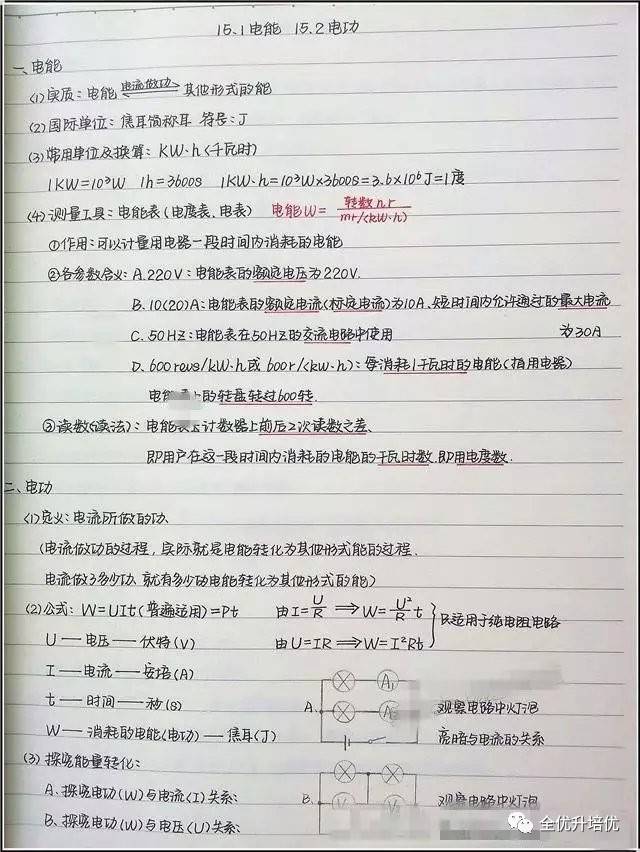 15.1电能 15.2电功
一、电能
(1)实质：电能 电流做功 其他形式的能
(2)国际单位：焦耳简称耳 符号：J
(3)常用单位及换算：KW·h(千瓦时)
1KW=10³W 1h=3600S 1KW·h=10³W×3600S=3.6×10⁶J=1度
(4)测量工具：电能表(电度表、电表) 电能W= 转数n r / m r/(kW·h)
①作用：可以计量用电器一段时间内消耗的电能
②各参数含义：A.220V：电能表的额定电压为220V.
B.10(20)A：电能表的额定电流(标定电流)为10A、短时间内允许通过的最大电流
为30A
C.50HZ：电能表在50HZ的交流电路中使用
D.600revs/kW·h或600r/(kW·h)：每消耗1千瓦时的电能(指用电器)
电能 上的转盘转过600转.
③读数(读法)：电能表上计数器上前后2次读数之差、
即用户在这一段时间内消耗的电能的千瓦时数.即用电度数.
二、电功
(1)定义：电流所做的功、
(电流做功的过程，实际就是电能转化为其他形式能的过程.
电流做了多少功.就有多少电能转化为其他形式的能)
(2)公式：W=UIt(普遍适用)=Pt 由I=U/R ⟹ W=U²/R t
由U=IR ⟹ W=I²Rt
只适用于纯电阻电路
U — 电压 — 伏特(V)
I — 电流 — 安培(A)
t — 时间 — 秒(s)
W — 消耗的电能(电功) — 焦耳(J)
A. A₁
观察电路中灯泡
亮暗与电流的关系
(3)探究能量转化：
A、探究电功(W)与电流(I)关系：
B、探究电功(W)与电压(U)关系：
B.
观察电路中灯泡
全优升培优